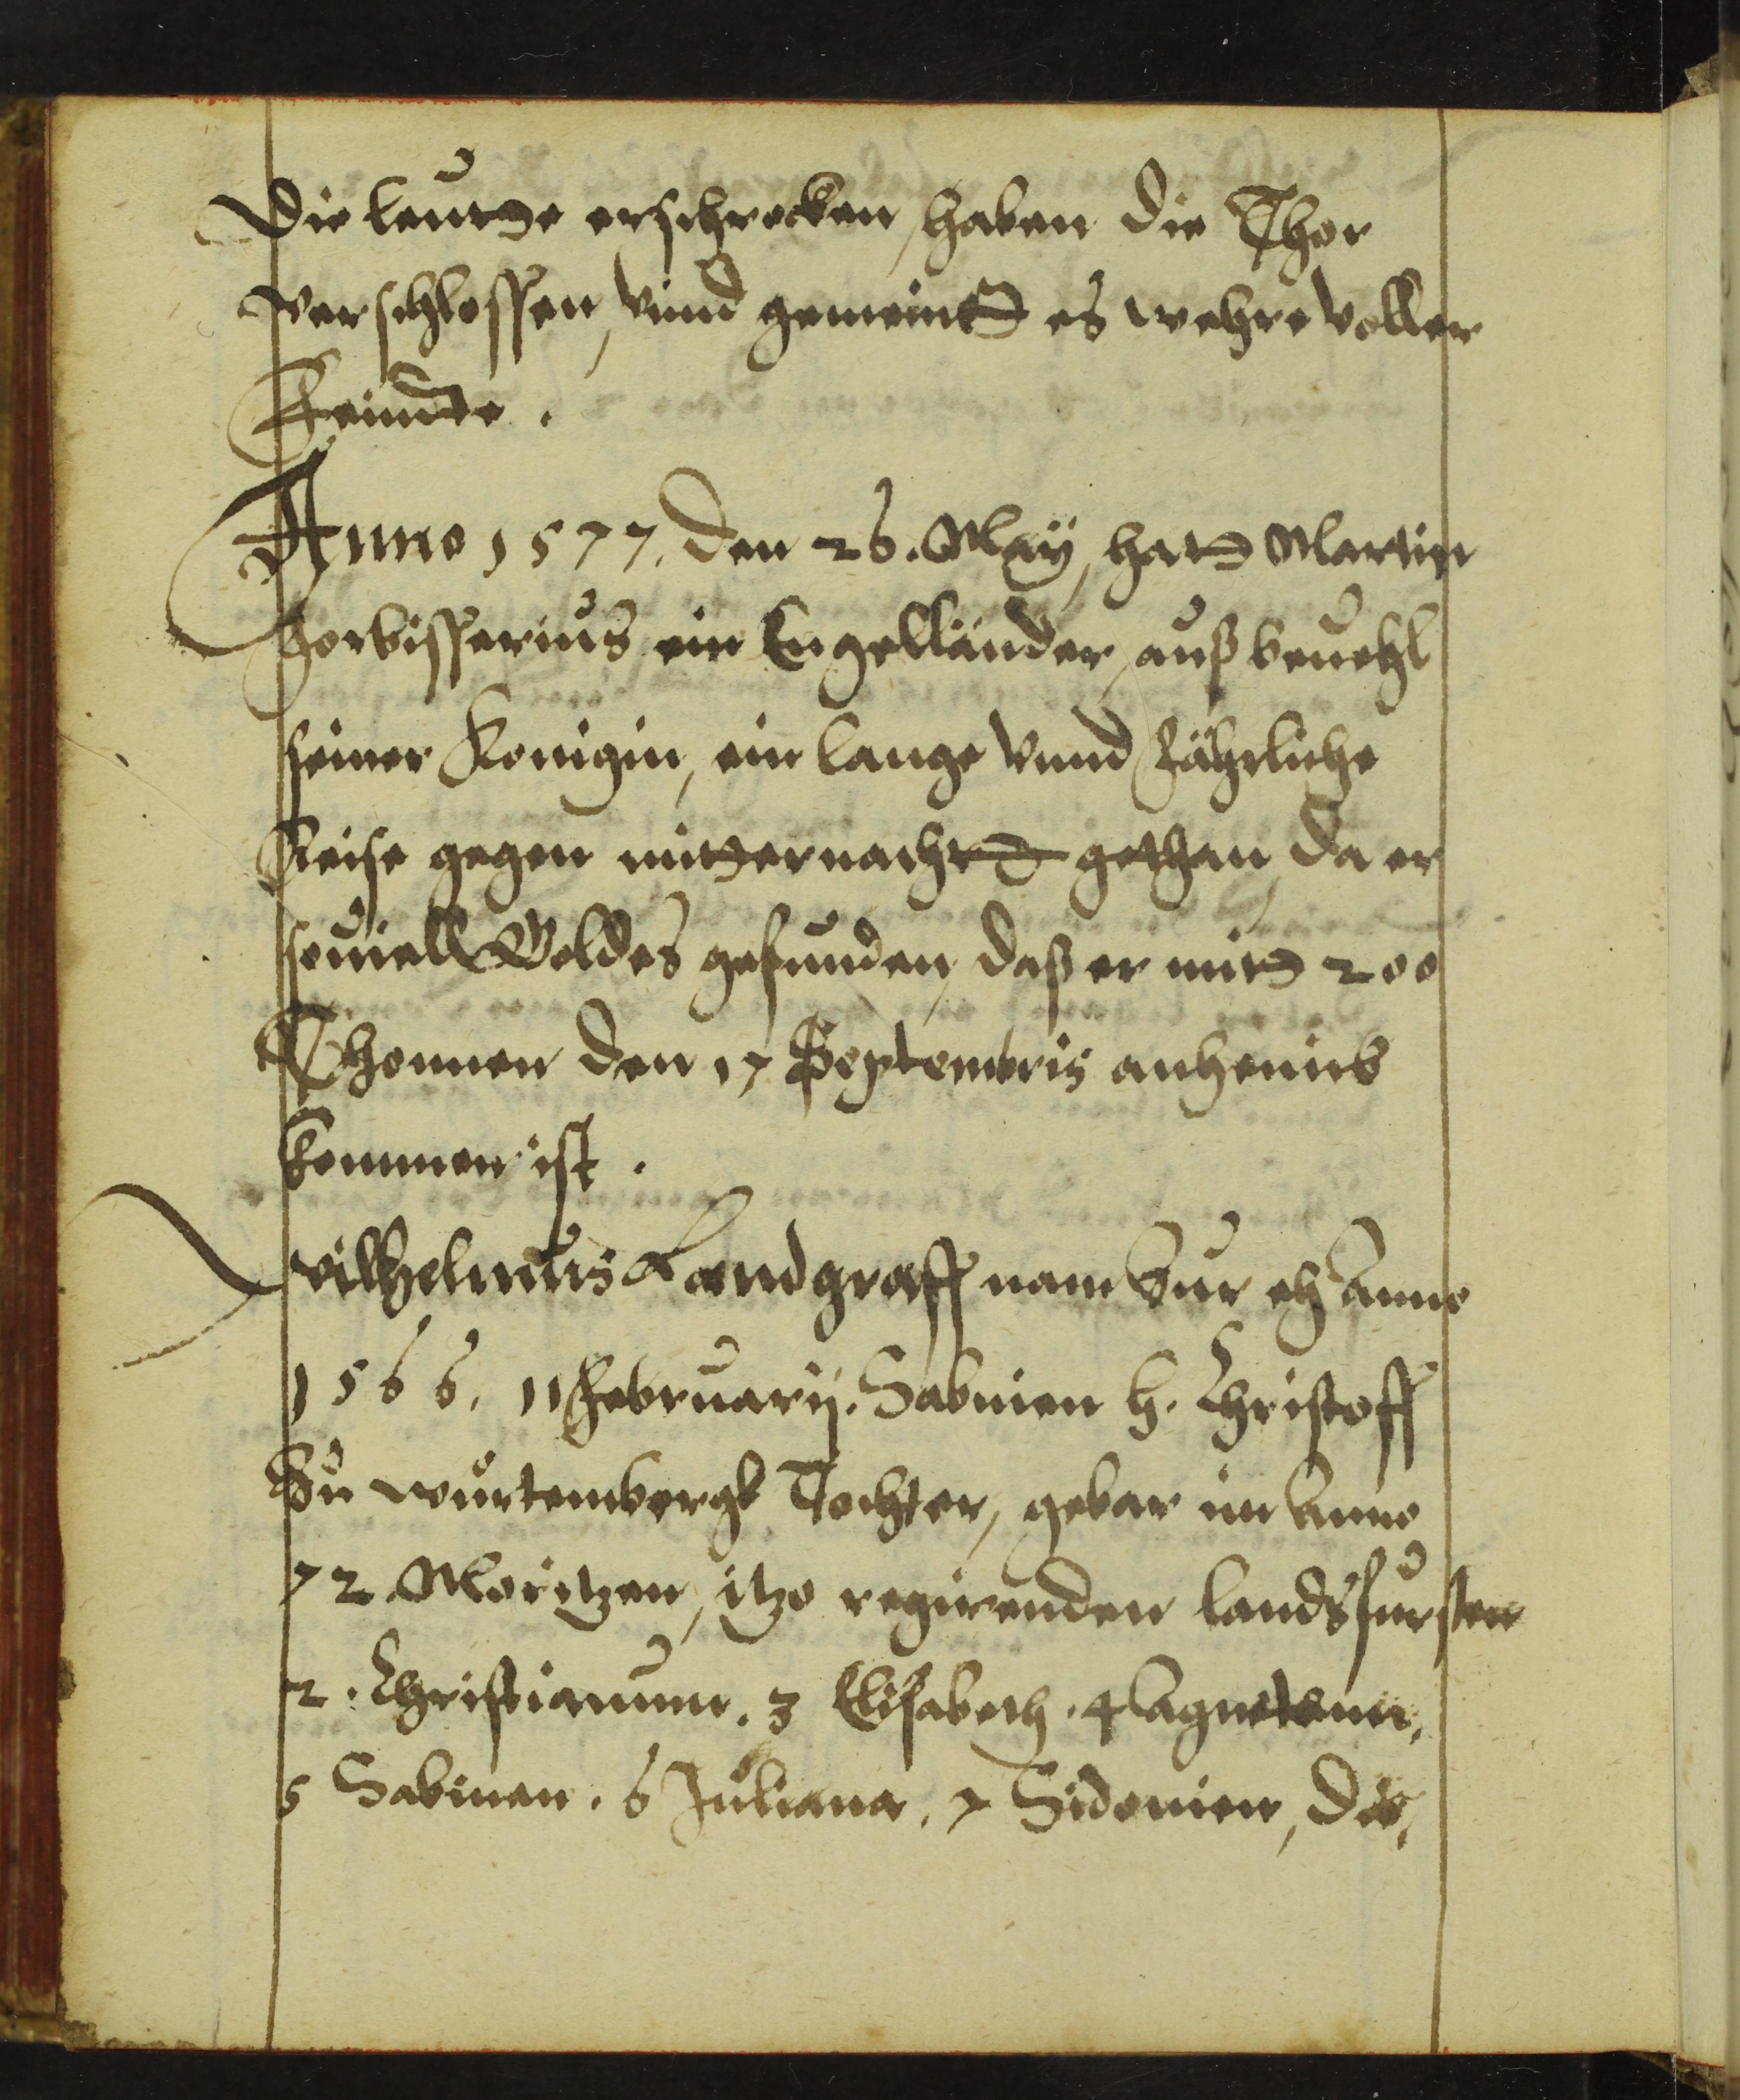 Die leutte erschrecken, haben die Thor
verschlossen, vnnd gemeintt es wehre voller
Feinde.
Anno 1577. den 26. Maÿ, hatt Martin
Horbisserius ein Engelländer auß beuehl
seiner Königin, ein lange vnnd fährliche
Reise gegen mitternachtt gethan, da er
souiell Goldes gefunden, daß er mitt 200
Thonnen den 17 Septembris anheimb
kommen ist.
Wilhelmus Landgraff nam zur eh Anno
1566. 11 Februarij. Sabinen H. Christoff
zu würtembergk Tochter, gebar im Anno
72 Moritzen, itzo regirenden landsfürsten
2. Christianum. 3 Elisabeth. 4 Agnetem.
5 Sabinen. 6 Juliana. 7 Sidonien, die,